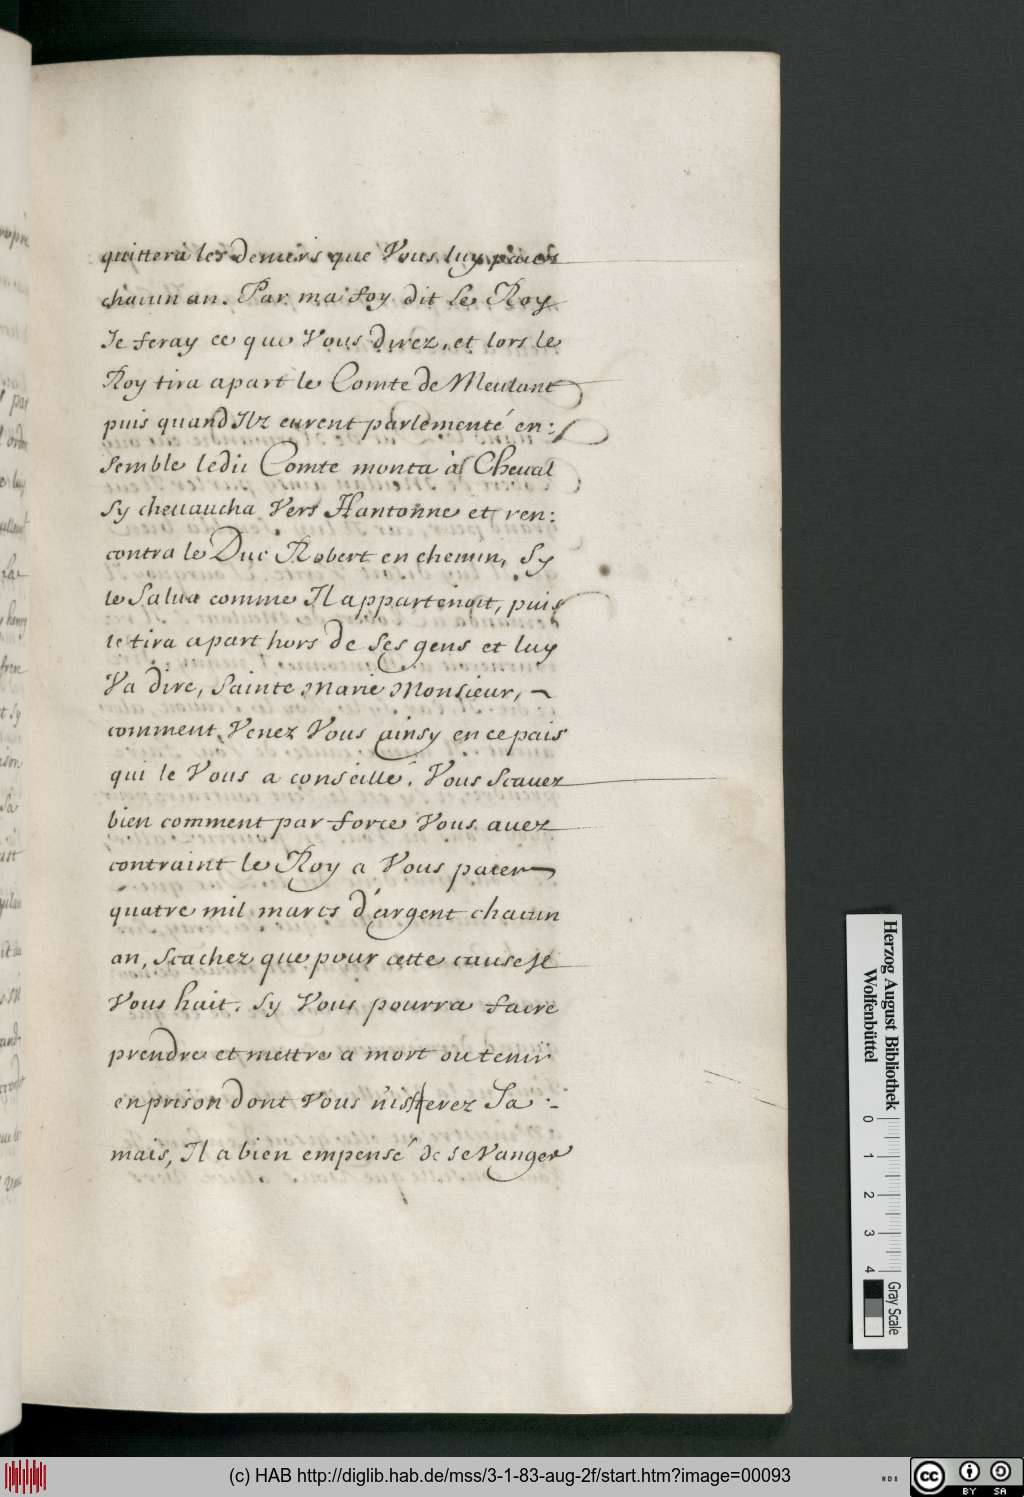 quittera les deniers que Vous luy paiés
chacun an. Par ma foy dit Le Roy
Je feray ce que Vous direz, et lors le
Roy tira apart le Comte de Meulant
puis quand Ilz eurent parlementé en:
semble ledit Comte monta à Cheual
sy cheuaucha Vers Hantonne et ren:
contra le Duc Robert en chemin, Sy
le Salua comme Il appartenoit, puis
le tira apart hors de Ses gens et luy
Va dire, Sainte Marie Monsieur, ~
comment Venez Vous ainsy en ce pais
qui le Vous a conseillé. Vous Scauez
bien comment par force Vous auez
contraint le Roy a Vous paier
quatre mil marcs d'argent chacun
an, Scachez que pour cette cause Il
Vous hait. Sy Vous pourra faire
prendre et mettre a mort ou tenir
en prison dont Vous n'isterez Ja:-
mais, Il a bien empensé de se Vanger
Herzog August Bibliothek
Wolfenbüttel
0 1 2 3 4
Gray Scale
(c) HAB http://diglib.hab.de/mss/3-1-83-aug-2f/start.htm?image=00093
cc BY SA